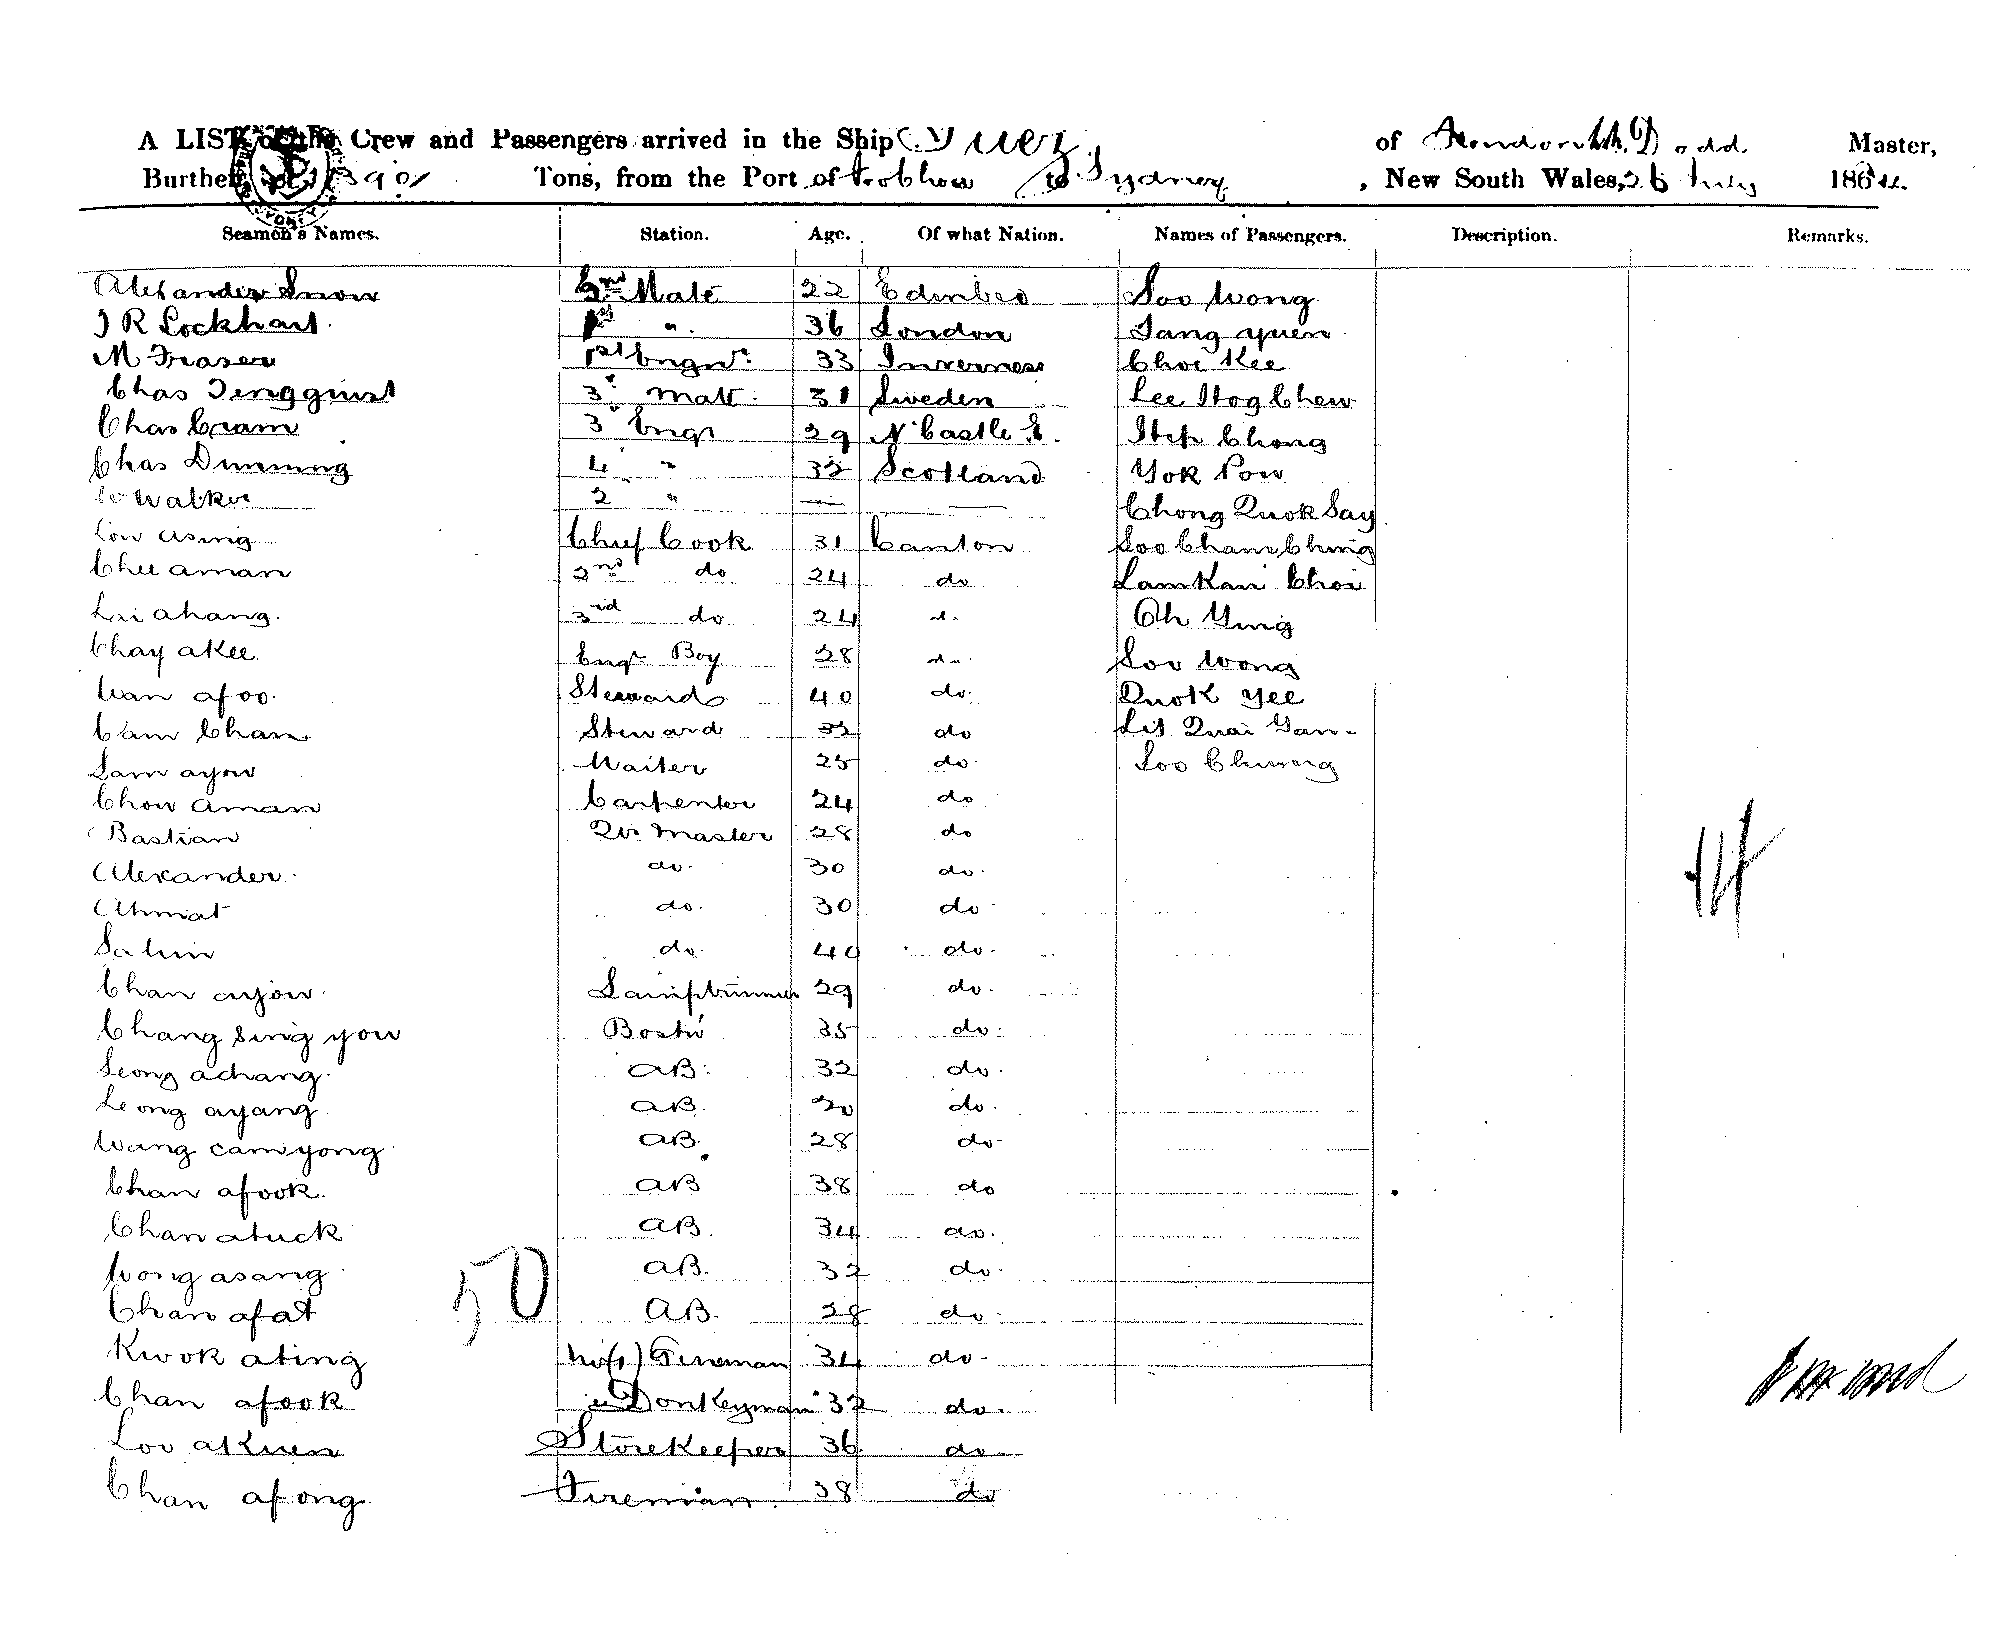 A LIST of the Crew and Passengers arrived in the Ship Suez of London W. Dodd Master,
Burthen of 1390 Tons, from the Port of Foochow to Sydney, New South Wales, 26 July 188
Seamen's Names. Station. Age. Of what Nation. Names of Passengers. Description. Remarks.
Alexander Snow 2nd Mate 22 Edinbro Soo Wong
J R Lockhart 1st " 36 London Tang yuen
M Fraser 1st Engnr. 33 Inverness Choi Kee
Chas Tengquist 3r Mate 31 Sweden Lee Hog Chew
Chas Cram 3r Engr 29 N'Castle E. Chong
Chas Dunning 4 " 32 Scotland Yok Pow
Walker 2 " — — Chong Quok Say
Low asing Chief Cook 31 Canton Soo Cham Ching
Chee aman 2nd do 24 do Lam Kai Choi
Lai ahang 3rd do 24 do Ah Ying
Chay akee Engr Boy 28 do Soo Wong
Wan afoo Steward 40 do Quok Yee
Cam Chan Steward 32 do Quai Yan
Lam ayow Waiter 25 do Soo Chung
Chow aman Carpenter 24 do
Bastian Qr Master 28 do
Alexander do 30 do
Ahmat do 30 do
14
Salim do 40 do
Chan ayow Lamptrimmer 29 do
Chang sing you Bostn 35 do
Leong achang AB 32 do
Leong ayang AB 30 do
Wang cam yong AB 28 do
Chan afook AB 38 do
Chan atuck AB 34 do
Wong asang AB 32 do
50
Chan afat AB 28 do
Kwok ating No (1) Fireman 34 do
Chan afook Donkeyman 32 do
Loo akuen Storekeeper 36 do
Chan afong Fireman 38 do